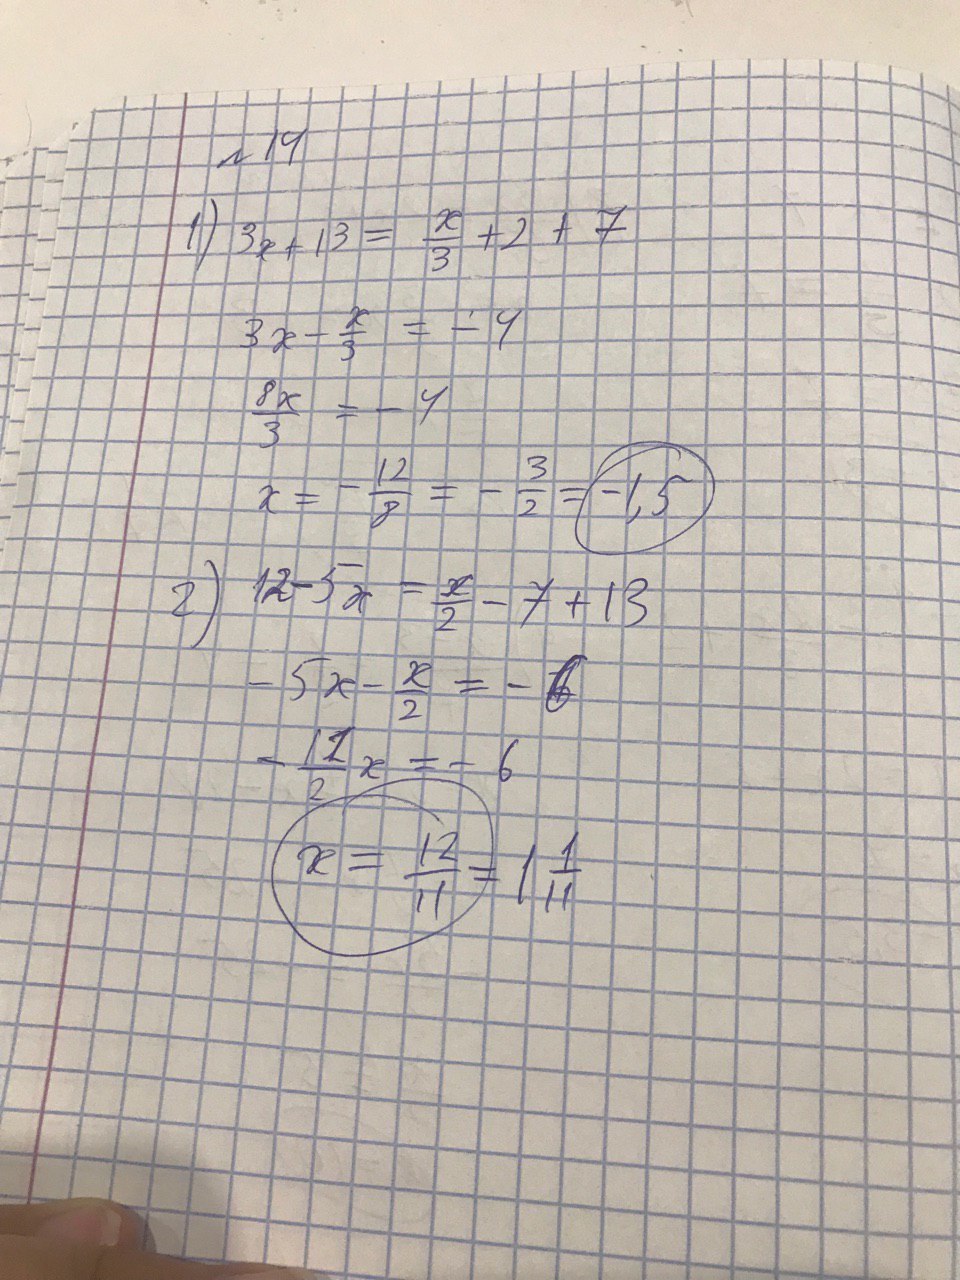 № 14
1) 3x + 13 = x/3 + 2 + 7
3x - x/3 = - 4
8x/3 = - 4
x = - 12/8 = - 3/2 = -1,5
2) 12 - 5x = x/2 - 7 + 13
- 5x - x/2 = - 6
- 11/2 x = - 6
x = 12/11 = 1 1/11